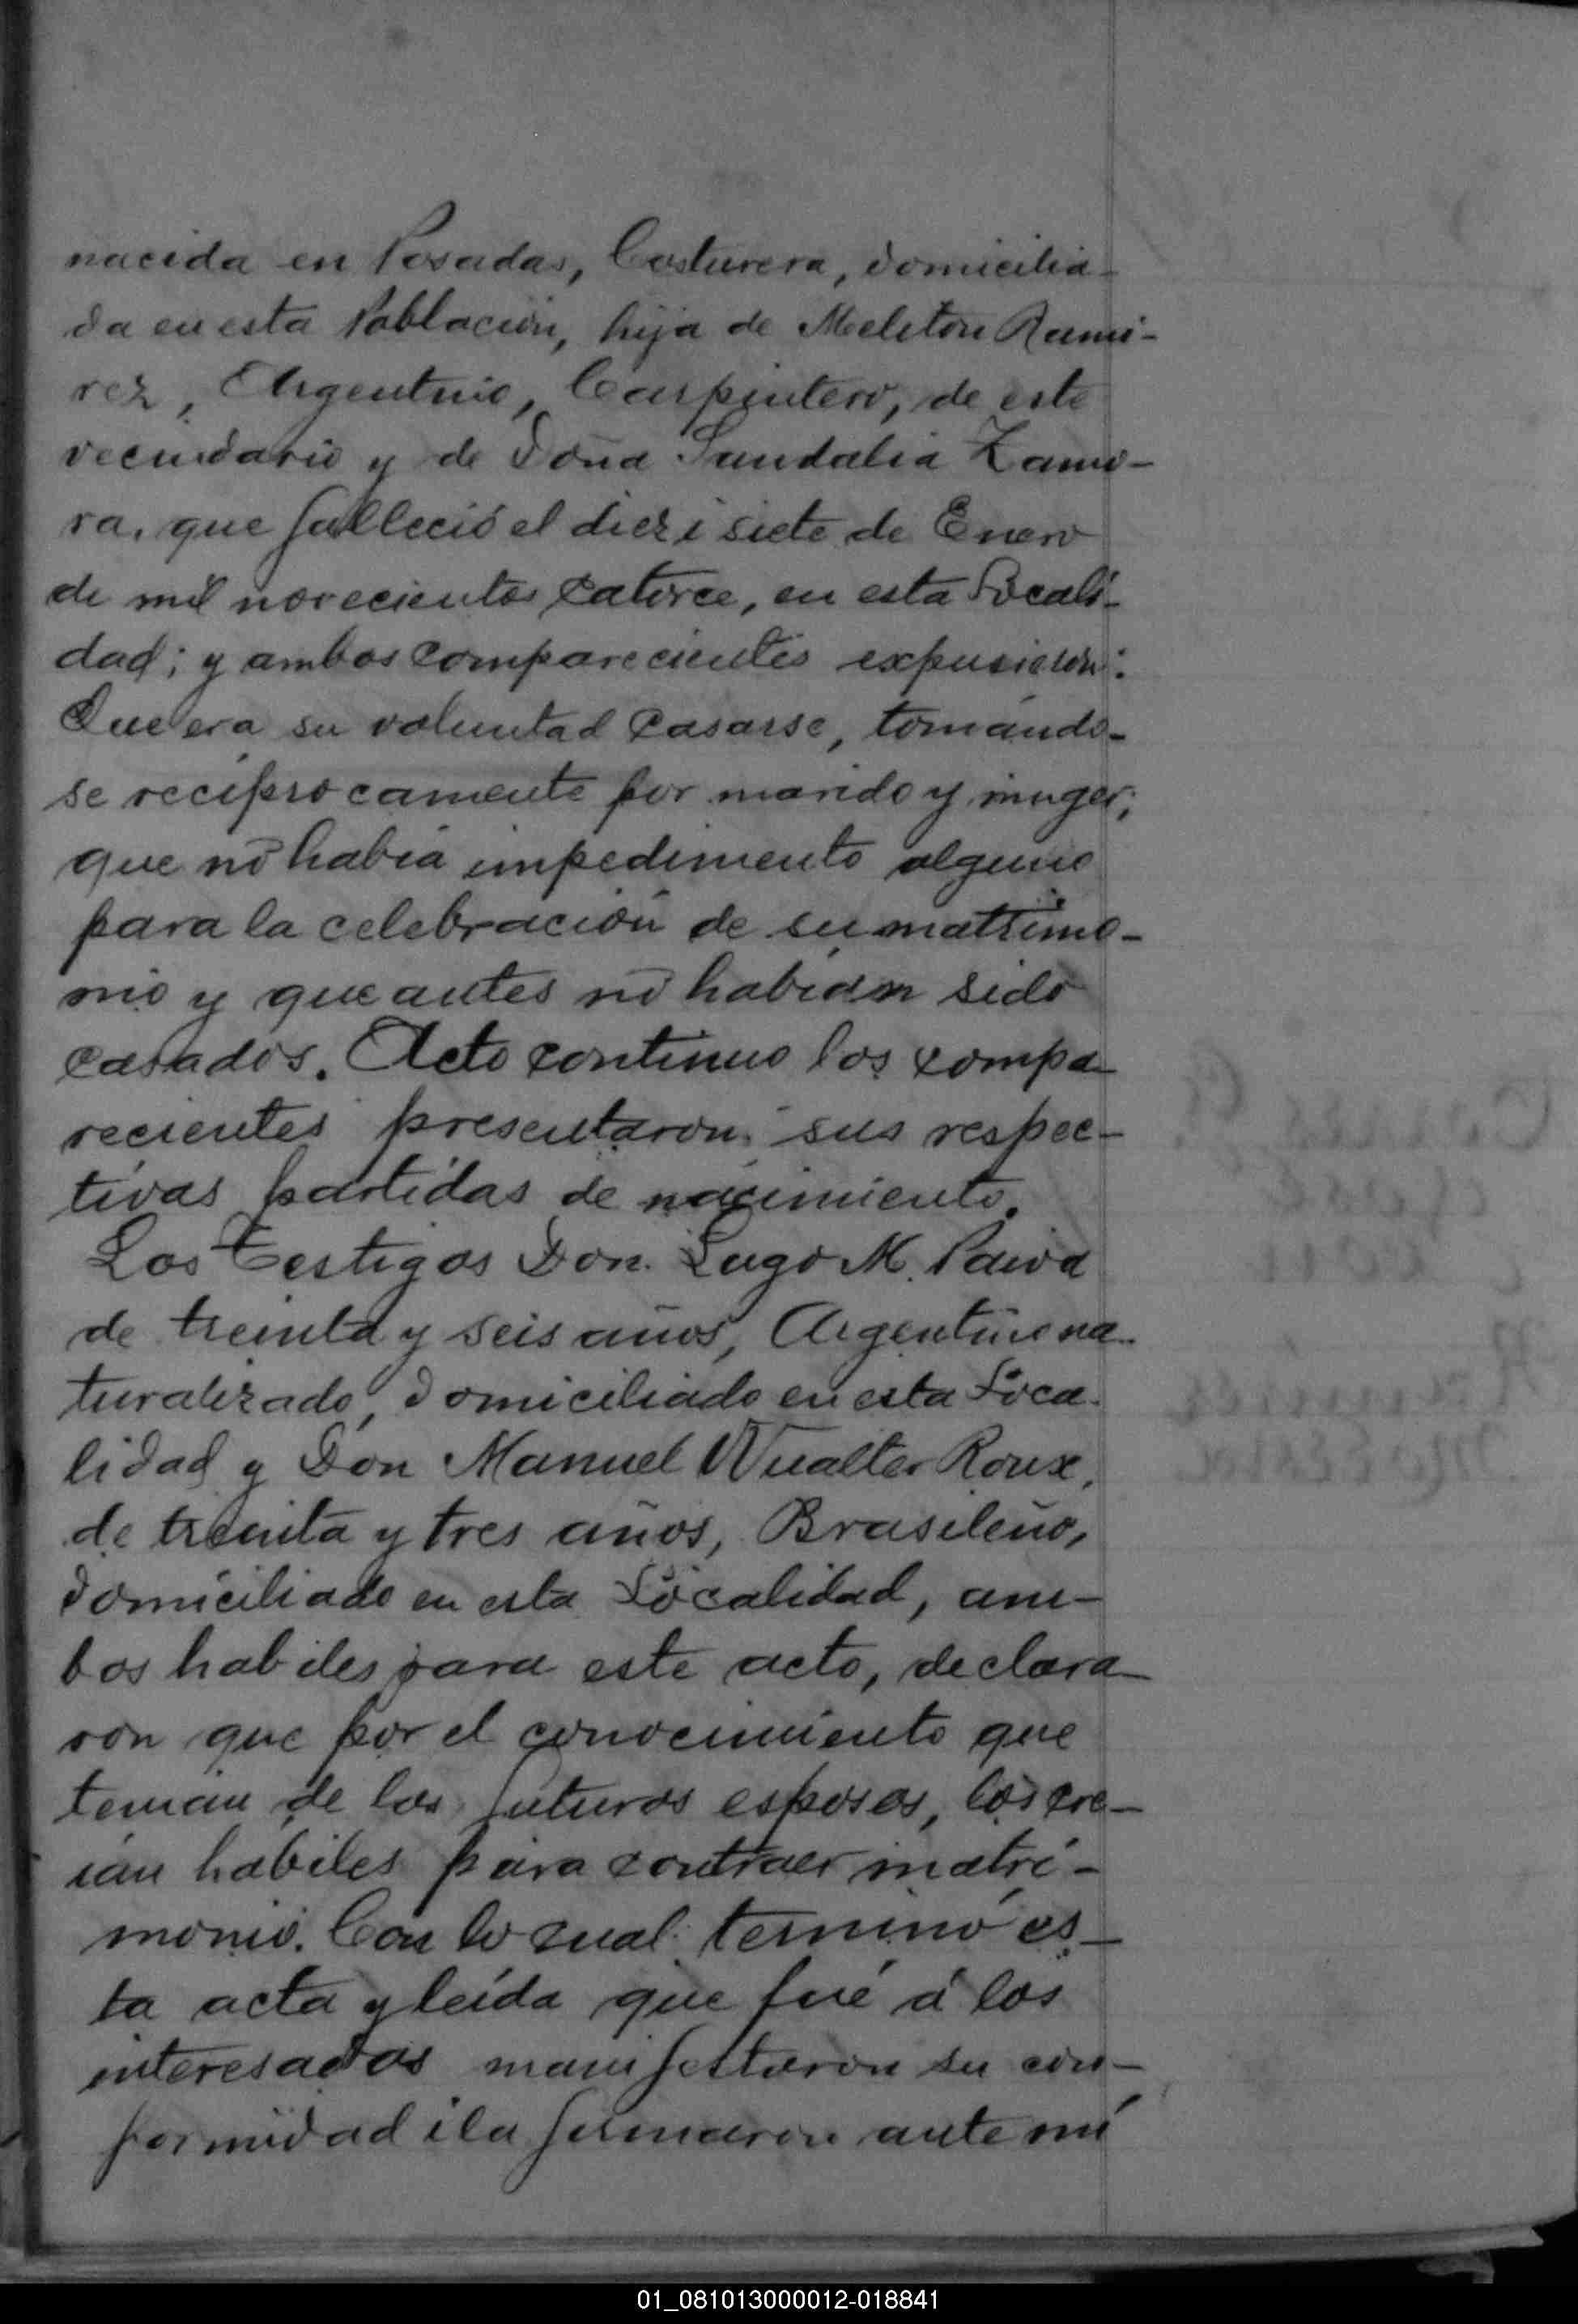 nacida en Posadas, Costurera, domicilia-
da en esta Poblacion, hija de Meliton Rami-
rez, Argentino, Carpintero, de este
vecindario y de Doña Sandalia Zamo-
ra, que falleció el diez i siete de Enero
de mil novecientos catorce, en esta Locali-
dad; y ambos comparecientes expusieron:
Que era su voluntad casarse, tomándo-
se recíprocamente por marido y muger;
que no habia impedimento alguno
para la celebración de su matrimo-
nio y que antes no habian sido
casados. Acto continuo los compa-
recientes presentaron sus respec-
tivas partidas de nacimiento.
Los Testigos Don Lugo M. Paiva
de treinta y seis años, Argentino na-
turalizado, domiciliado en esta Loca-
lidad y Don Manuel Wualter Roux,
de treinta y tres años, Brasileño,
domiciliado en esta Localidad, am-
bos habiles para este acto, declara-
ron que por el conocimiento que
tenian de los futuros esposos, los cre-
ian habiles para contraer matri-
monio. Con lo cual terminó es-
ta acta y leida que fué á los
interesados manifestaron su con-
formidad i la firmaron ante mí
01_081013000012-018841